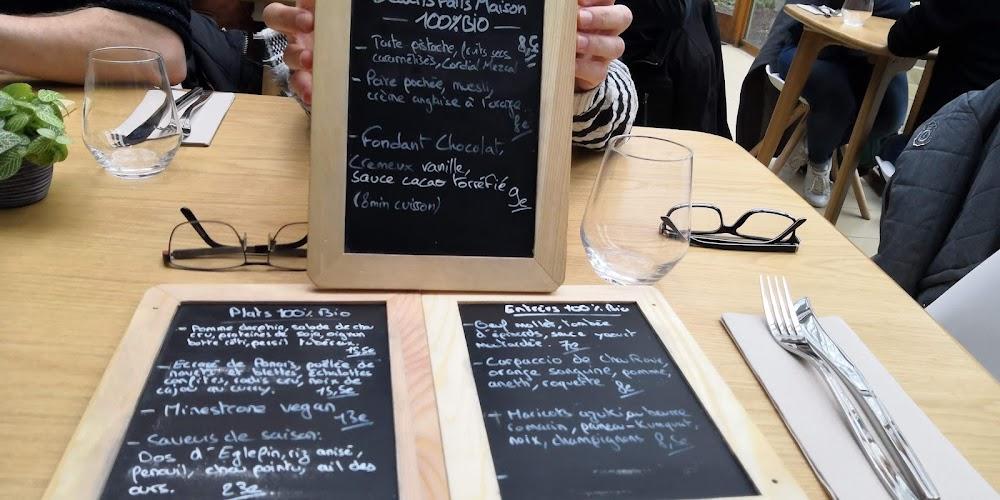 Desserts Faits Maison
100% Bio
- Tarte pistache, fruits secs
caramélisés, Cordial Mezcal
8,5€
- Poire pochée, muesli,
crème anglaise à l'orange
8€
- Fondant Chocolat,
Cremeux vanille,
sauce cacao torréfié
9€
(8min cuisson)
Plats 100% Bio
- Pomme darphin, salade de chou
cru, protéines de soja, oignon
botte rôti, persil tubéreux.
15,5€
- Ecrasé de Panais, poêlée de
navets, blettes, échalotes
confites, radis cru, noix de
cajou au curry. 15,5€
- Minestrone vegan
13€
- Saveurs de saison:
Dos d'Eglefin, riz anisé,
fenouil, chou pointu, ail des
ours. 23€
Entrées 100% Bio
- Oeuf mollet, tombée
d'épinards, sauce yaourt
moutardée. 7€
- Carpaccio de Chou Rave,
orange sanguine, pomme,
aneth, roquette 8€
- Haricots azuki au beurre
romarin, Kumquat,
noix, champignons 8,5€